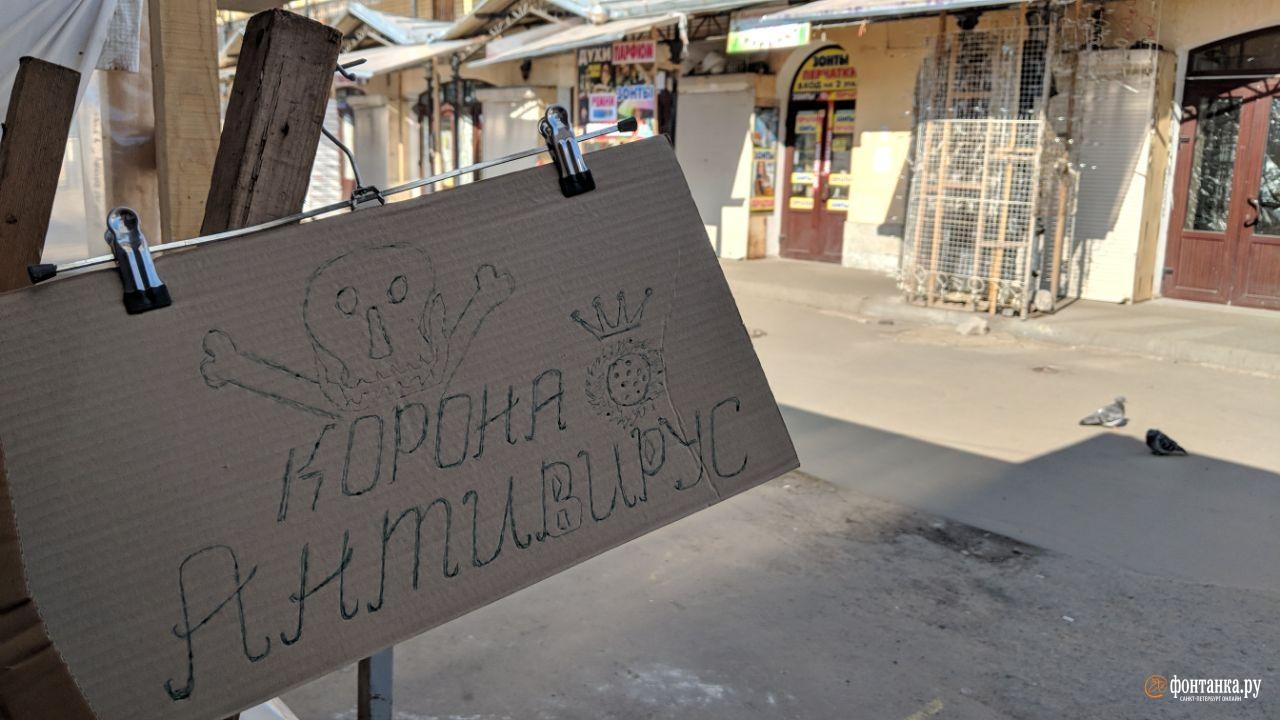 КОРОНА
АНТИВИРУС
ДУХИ
ПАРФЮМ
РЕМНИ
ЗОНТЫ
ЗОНТЫ
ПЕРЧАТКИ
фонтанка.ру
САНКТ-ПЕТЕРБУРГ ОНЛАЙН